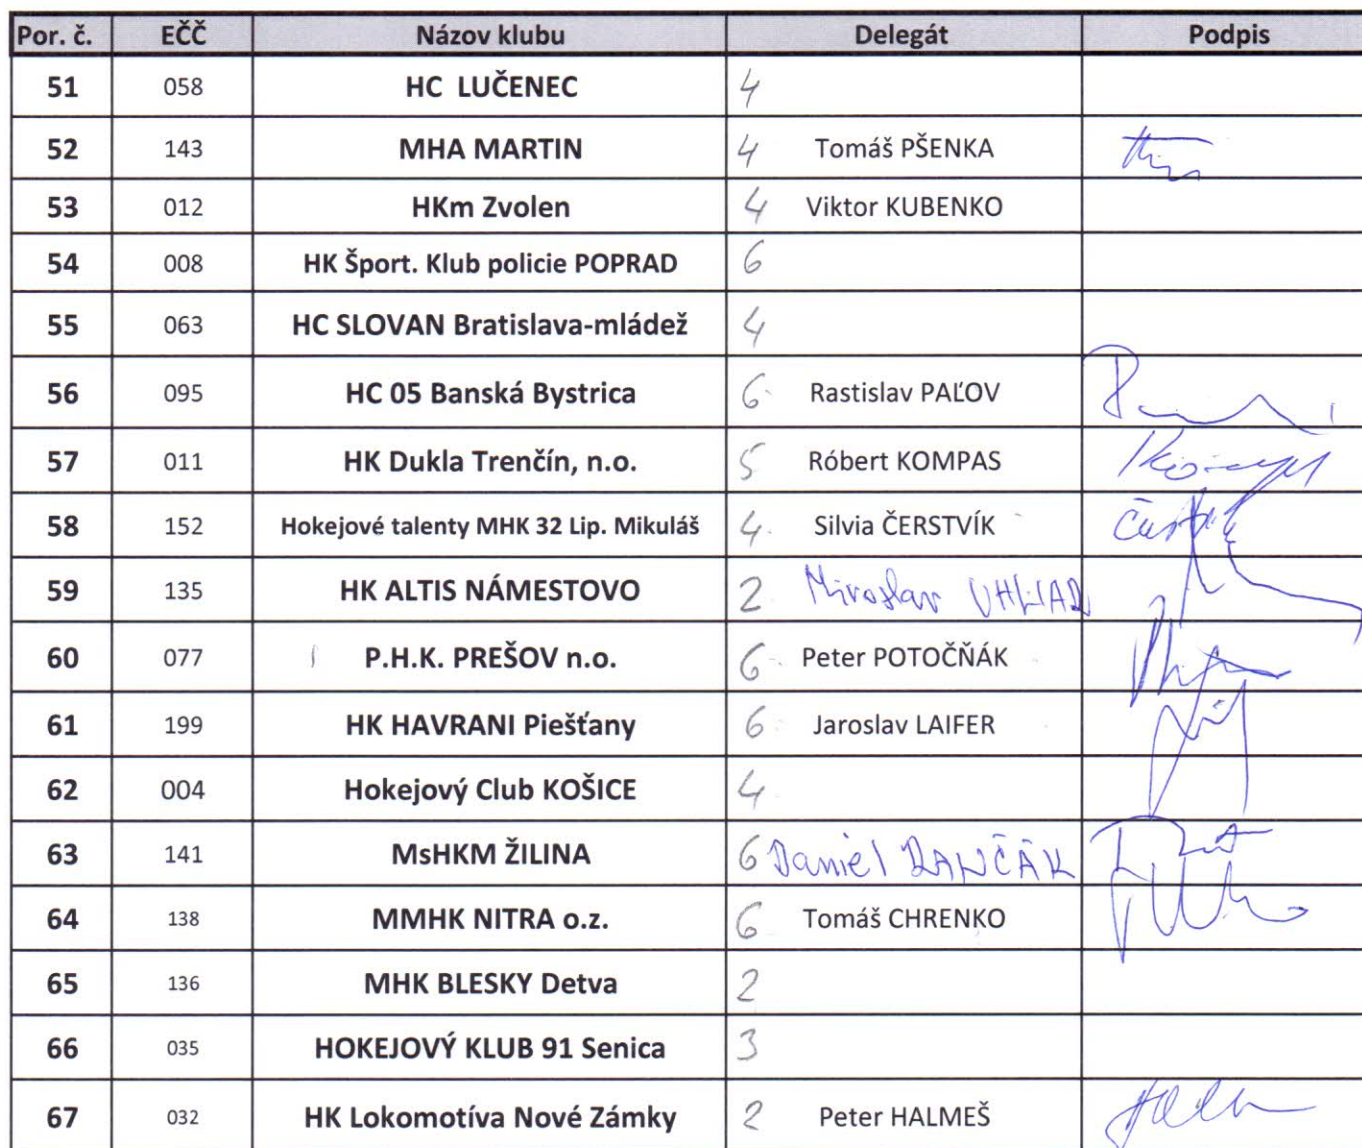 Por. č. EČČ Názov klubu Delegát Podpis
51 058 HC LUČENEC 4
52 143 MHA MARTIN 4 Tomáš PŠENKA
53 012 HKm Zvolen 4 Viktor KUBENKO
54 008 HK Šport. Klub policie POPRAD 6
55 063 HC SLOVAN Bratislava-mládež 4
56 095 HC 05 Banská Bystrica 6 Rastislav PAĽOV
57 011 HK Dukla Trenčín, n.o. 5 Róbert KOMPAS
58 152 Hokejové talenty MHK 32 Lip. Mikuláš 4 Silvia ČERSTVÍK
59 135 HK ALTIS NÁMESTOVO 2 Miroslav
60 077 P.H.K. PREŠOV n.o. 6 Peter POTOČŇÁK
61 199 HK HAVRANI Piešťany 6 Jaroslav LAIFER
62 004 Hokejový Club KOŠICE 4
63 141 MsHKM ŽILINA 6 Daniel
64 138 MMHK NITRA o.z. 6 Tomáš CHRENKO
65 136 MHK BLESKY Detva 2
66 035 HOKEJOVÝ KLUB 91 Senica 3
67 032 HK Lokomotíva Nové Zámky 2 Peter HALMEŠ